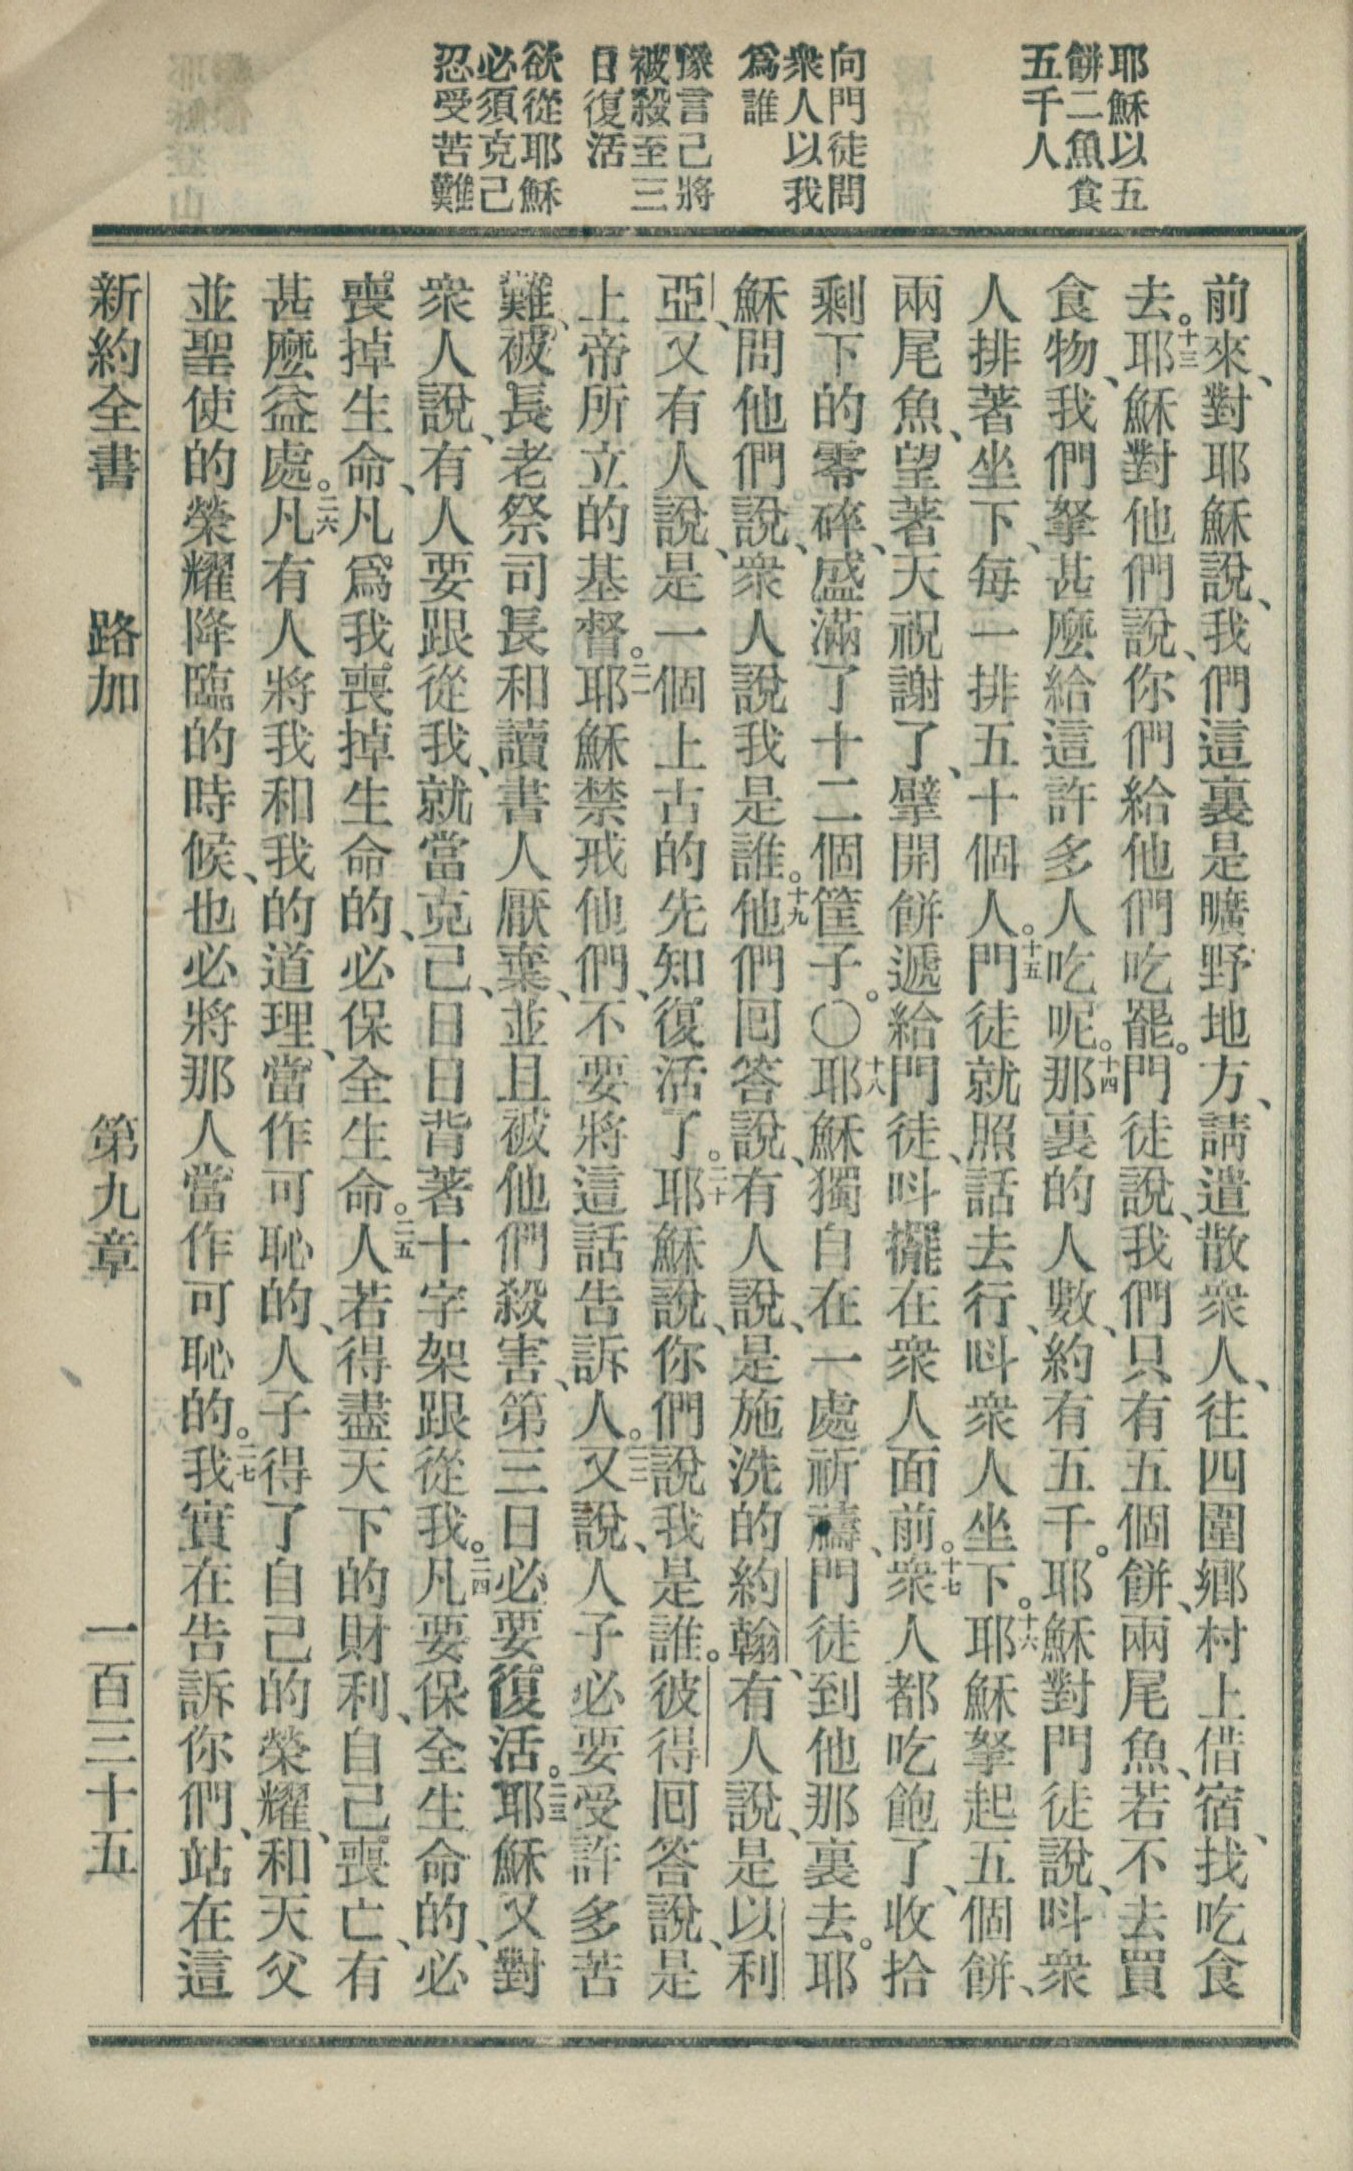 耶穌以五
餅二魚食
五千人
向門徒問
衆人以我
爲誰
豫言己將
被殺至三
日復活
欲從耶穌
必須克己
忍受苦難
前來、對耶穌說、我們這裏是曠野地方、請遣散衆人、往四圍鄉村上借宿、找吃食
去。十三耶穌對他們說、你們給他們吃罷。門徒說、我們只有五個餅、兩尾魚、若不去買
食物、我們拏甚麽給這許多人吃呢。十四那裏的人數、約有五千。耶穌對門徒說、呌衆
人排著坐下、每一排五十個人。十五門徒就照話去行、呌衆人坐下。十六耶穌拏起五個餅、
兩尾魚、望著天祝謝了、擘開餅遞給門徒、呌擺在衆人面前。十七衆人都吃飽了、收拾
剩下的零碎、盛滿了十二個筐子。〇十八耶穌獨自在一處祈禱、門徒到他那裏去。耶
穌問他們說、衆人說我是誰。十九他們回答說、有人說、是施洗的約翰、有人說、是以利
亞、又有人說、是一個上古的先知復活了。二十耶穌說、你們說我是誰。彼得回答說、是
上帝所立的基督。二一耶穌禁戒他們、不要將這話告訴人。二二又說、人子必要受許多苦
難、被長老祭司長和讀書人厭棄、並且被他們殺害、第三日必要復活。二三耶穌又對
衆人說、有人要跟從我、就當克己、日日背著十字架跟從我。二四凡要保全生命的、必
喪掉生命、凡爲我喪掉生命的、必保全生命。二五人若得盡天下的財利、自己喪亡、有
甚麽益處。二六凡有人將我和我的道理、當作可恥的、人子得了自己的榮耀、和天父
並聖使的榮耀降臨的時候、也必將那人當作可恥的。二七我實在告訴你們、站在這
新約全書　路加　第九章　一百三十五